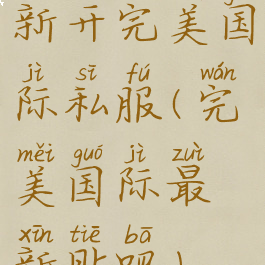 新开完美国
jì sī fú wán
际私服(完
měi guó jì zuì
美国际最
xīn tiē bā
新贴吧)